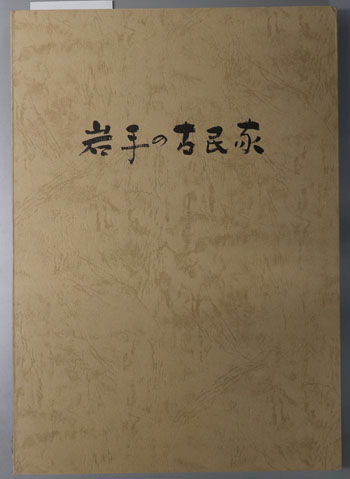 岩手の古民家